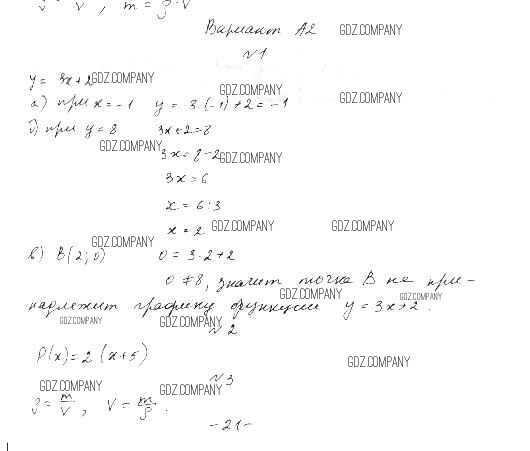 ρ = m/V, m = ρ · V
Вариант А2 GDZ.COMPANY
№1
y = 3x+2 GDZ.COMPANY
GDZ.COMPANY
а) при x = -1 y = 3·(-1)+2 = -1 GDZ.COMPANY
б) при y = 8 3x+2=8
GDZ.COMPANY 3x = 8-2 GDZ.COMPANY
3x = 6
x = 6:3
x = 2 GDZ.COMPANY GDZ.COMPANY
GDZ.COMPANY
в) B(2; 0) 0 = 3·2+2
0 ≠ 8, значит точка B не при-
GDZ.COMPANY GDZ.COMPANY
надлежит графику функции y = 3x+2.
GDZ.COMPANY GDZ.COMPANY
№2
P(x) = 2(x+5)
GDZ.COMPANY
№3
GDZ.COMPANY GDZ.COMPANY
ρ = m/V, V = m/ρ.
-21-